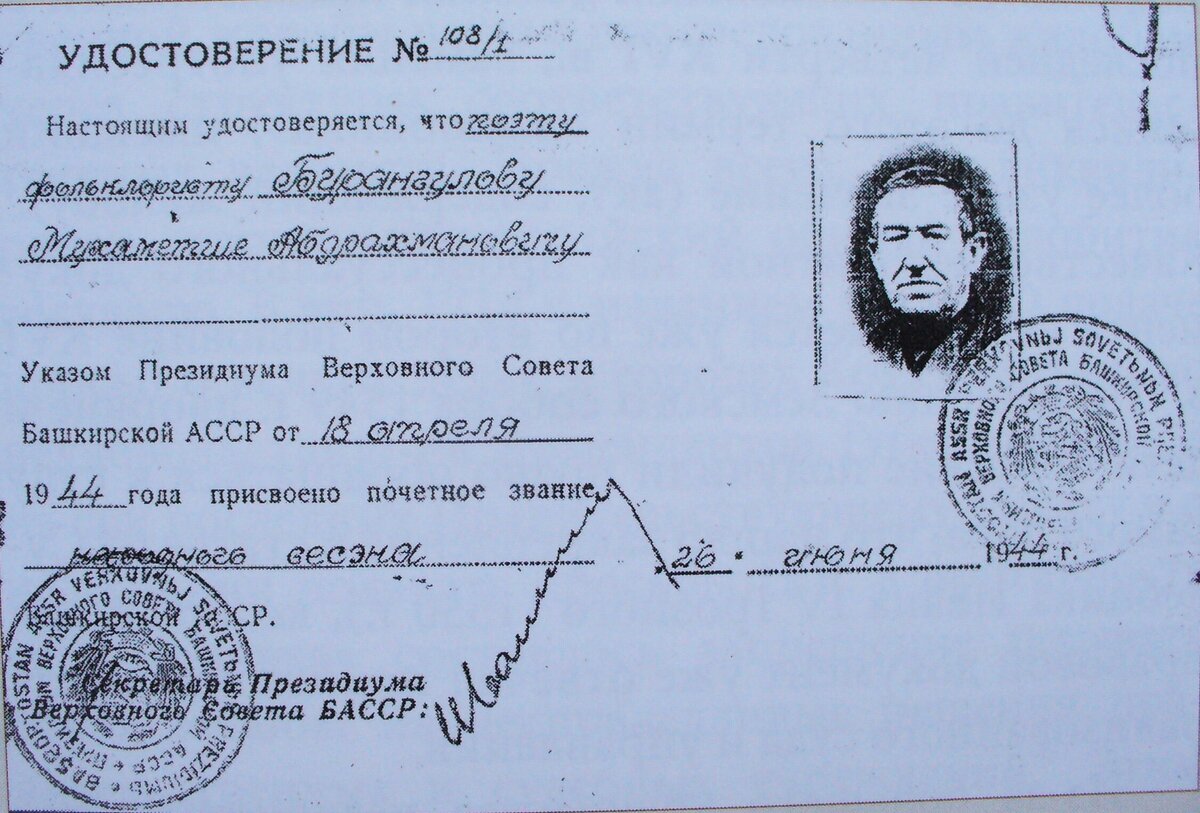 УДОСТОВЕРЕНИЕ № 108/1
Настоящим удостоверяется, что поэту
фольклористу Бурангулову
Мухаметше Абдрахмановичу
Указом Президиума Верховного Совета
Башкирской АССР от 18 апреля
1944 года присвоено почетное звание
народного сесэна
Башкирской АССР.
Секретарь Президиума
Верховного Совета БАССР:
26 июня 1944 г.
ВЕРХОВНОГО СОВЕТА БАШКИРСКОЙ
VERXOVNЬJ SOVETЬNЬꞐ
BAŞQORTOSTAN ASSR VERXOVNЬJ SOVETЬNЬꞐ PREZIDIUMЬ
ПРЕЗИДИУМ ВЕРХОВНОГО СОВЕТА БАШКИРСКОЙ АССР